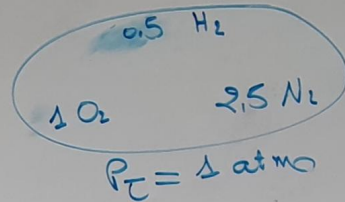 0.5 H₂
1 O₂ 2,5 N₂
P_T = 1 atmo